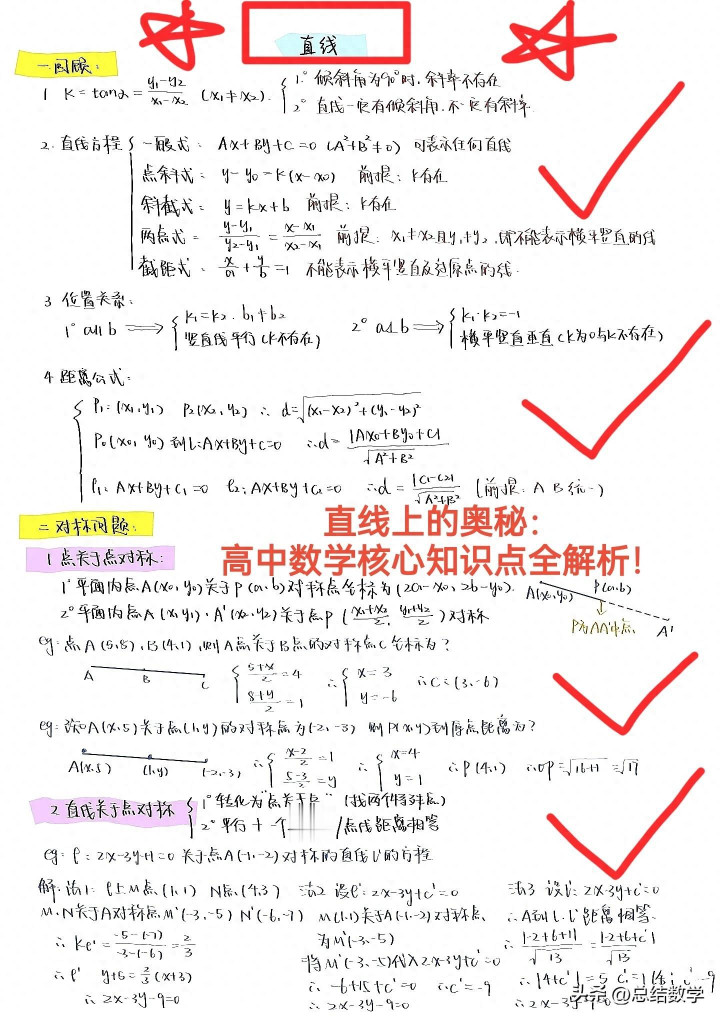 直线
一 回顾:
1 K=tanα=\frac{y₁-y₂}{x₁-x₂} (x₁≠x₂). { 1° 倾斜角为90°时,斜率不存在
2° 直线一定有倾斜角,不一定有斜率.
2. 直线方程 { 一般式: Ax+By+C=0 (A²+B²≠0) 可表示任何直线
点斜式: y-y₀=k(x-x₀) 前提: k存在
斜截式: y=kx+b 前提: k存在
两点式: \frac{y-y₁}{y₂-y₁}=\frac{x-x₁}{x₂-x₁} 前提: x₁≠x₂且y₁≠y₂,即不能表示横平竖直的线
截距式: \frac{x}{a}+\frac{y}{b}=1 不能表示横平竖直及过原点的线.
3 位置关系:
1° a∥b ⟹ { K₁=K₂. b₁≠b₂
竖直线平行(K不存在)
2° a⊥b ⟹ { K₁·K₂=-1
横平竖直垂直(K为0与K不存在)
4 距离公式:
P₁:(x₁,y₁) P₂(x₂,y₂) ∴ d=√((x₁-x₂)²+(y₁-y₂)²)
P₀(x₀,y₀)到l:Ax+By+C=0 ∴d=\frac{|Ax₀+By₀+C|}{√(A²+B²)}
l₁: Ax+By+C₁=0 l₂: Ax+By+C₂=0 ∴d=\frac{|C₁-C₂|}{√(A²+B²)} (前提: A B统一)
直线上的奥秘:
高中数学核心知识点全解析!
二 对称问题:
1 点关于点对称:
1° 平面内点A(x₀,y₀)关于P(a,b)对称点坐标为(2a-x₀,2b-y₀).
2° 平面内点A(x₁,y₁),A'(x₂,y₂)关于点P(\frac{x₁+x₂}{2},\frac{y₁+y₂}{2})对称
A(x₀,y₀) P(a,b)
P为AA'中点 A'
eg: 点A(5,8),B(4,1),则A点关于B点的对称点C坐标为?
A B C { \frac{5+x}{2}=4
\frac{8+y}{2}=1 ∴ { x=3
y=-6 ∴C=(3,-6)
eg: 已知A(x,5)关于点(1,y)的对称点为(-2,-3) 则P(x,y)到原点距离为?
A(x,5) (1,y) (-2,-3) ∴ { \frac{x-2}{2}=1
\frac{5-3}{2}=y ∴ { x=4
y=1 ∴P(4,1) ∴OP=√(16+1)=√17
2 直线关于点对称 { 1° 转化为"点关于点" (找两个特殊点)
2° 平行+一个 /点线距离相等
eg: l:2x-3y+1=0关于点A(-1,-2)对称的直线l'的方程
解: 法1: l上M点(1,1) N点(4,3)
M、N关于A对称点M'(-3,-5) N'(-6,-7)
∴ Kl'=\frac{-5-(-7)}{-3-(-6)}=\frac{2}{3}
∴l' y+5=\frac{2}{3}(x+3)
∴2x-3y-9=0
法2 设l':2x-3y+c'=0
M(1,1)关于A(-1,-2)对称点
为M'(-3,-5)
将M'(-3,-5)代入2x-3y+c'=0
∴ -6+15+c'=0 ∴c'=-9
∴ 2x-3y-9=0
法3 设l': 2x-3y+c'=0
∴A到l、l'距离相等.
∴\frac{|-2+6+1|}{√13}=\frac{|-2+6+c'|}{√13}
∴|4+c'|=5
∴2x-3y-9=0
头条 @总结数学